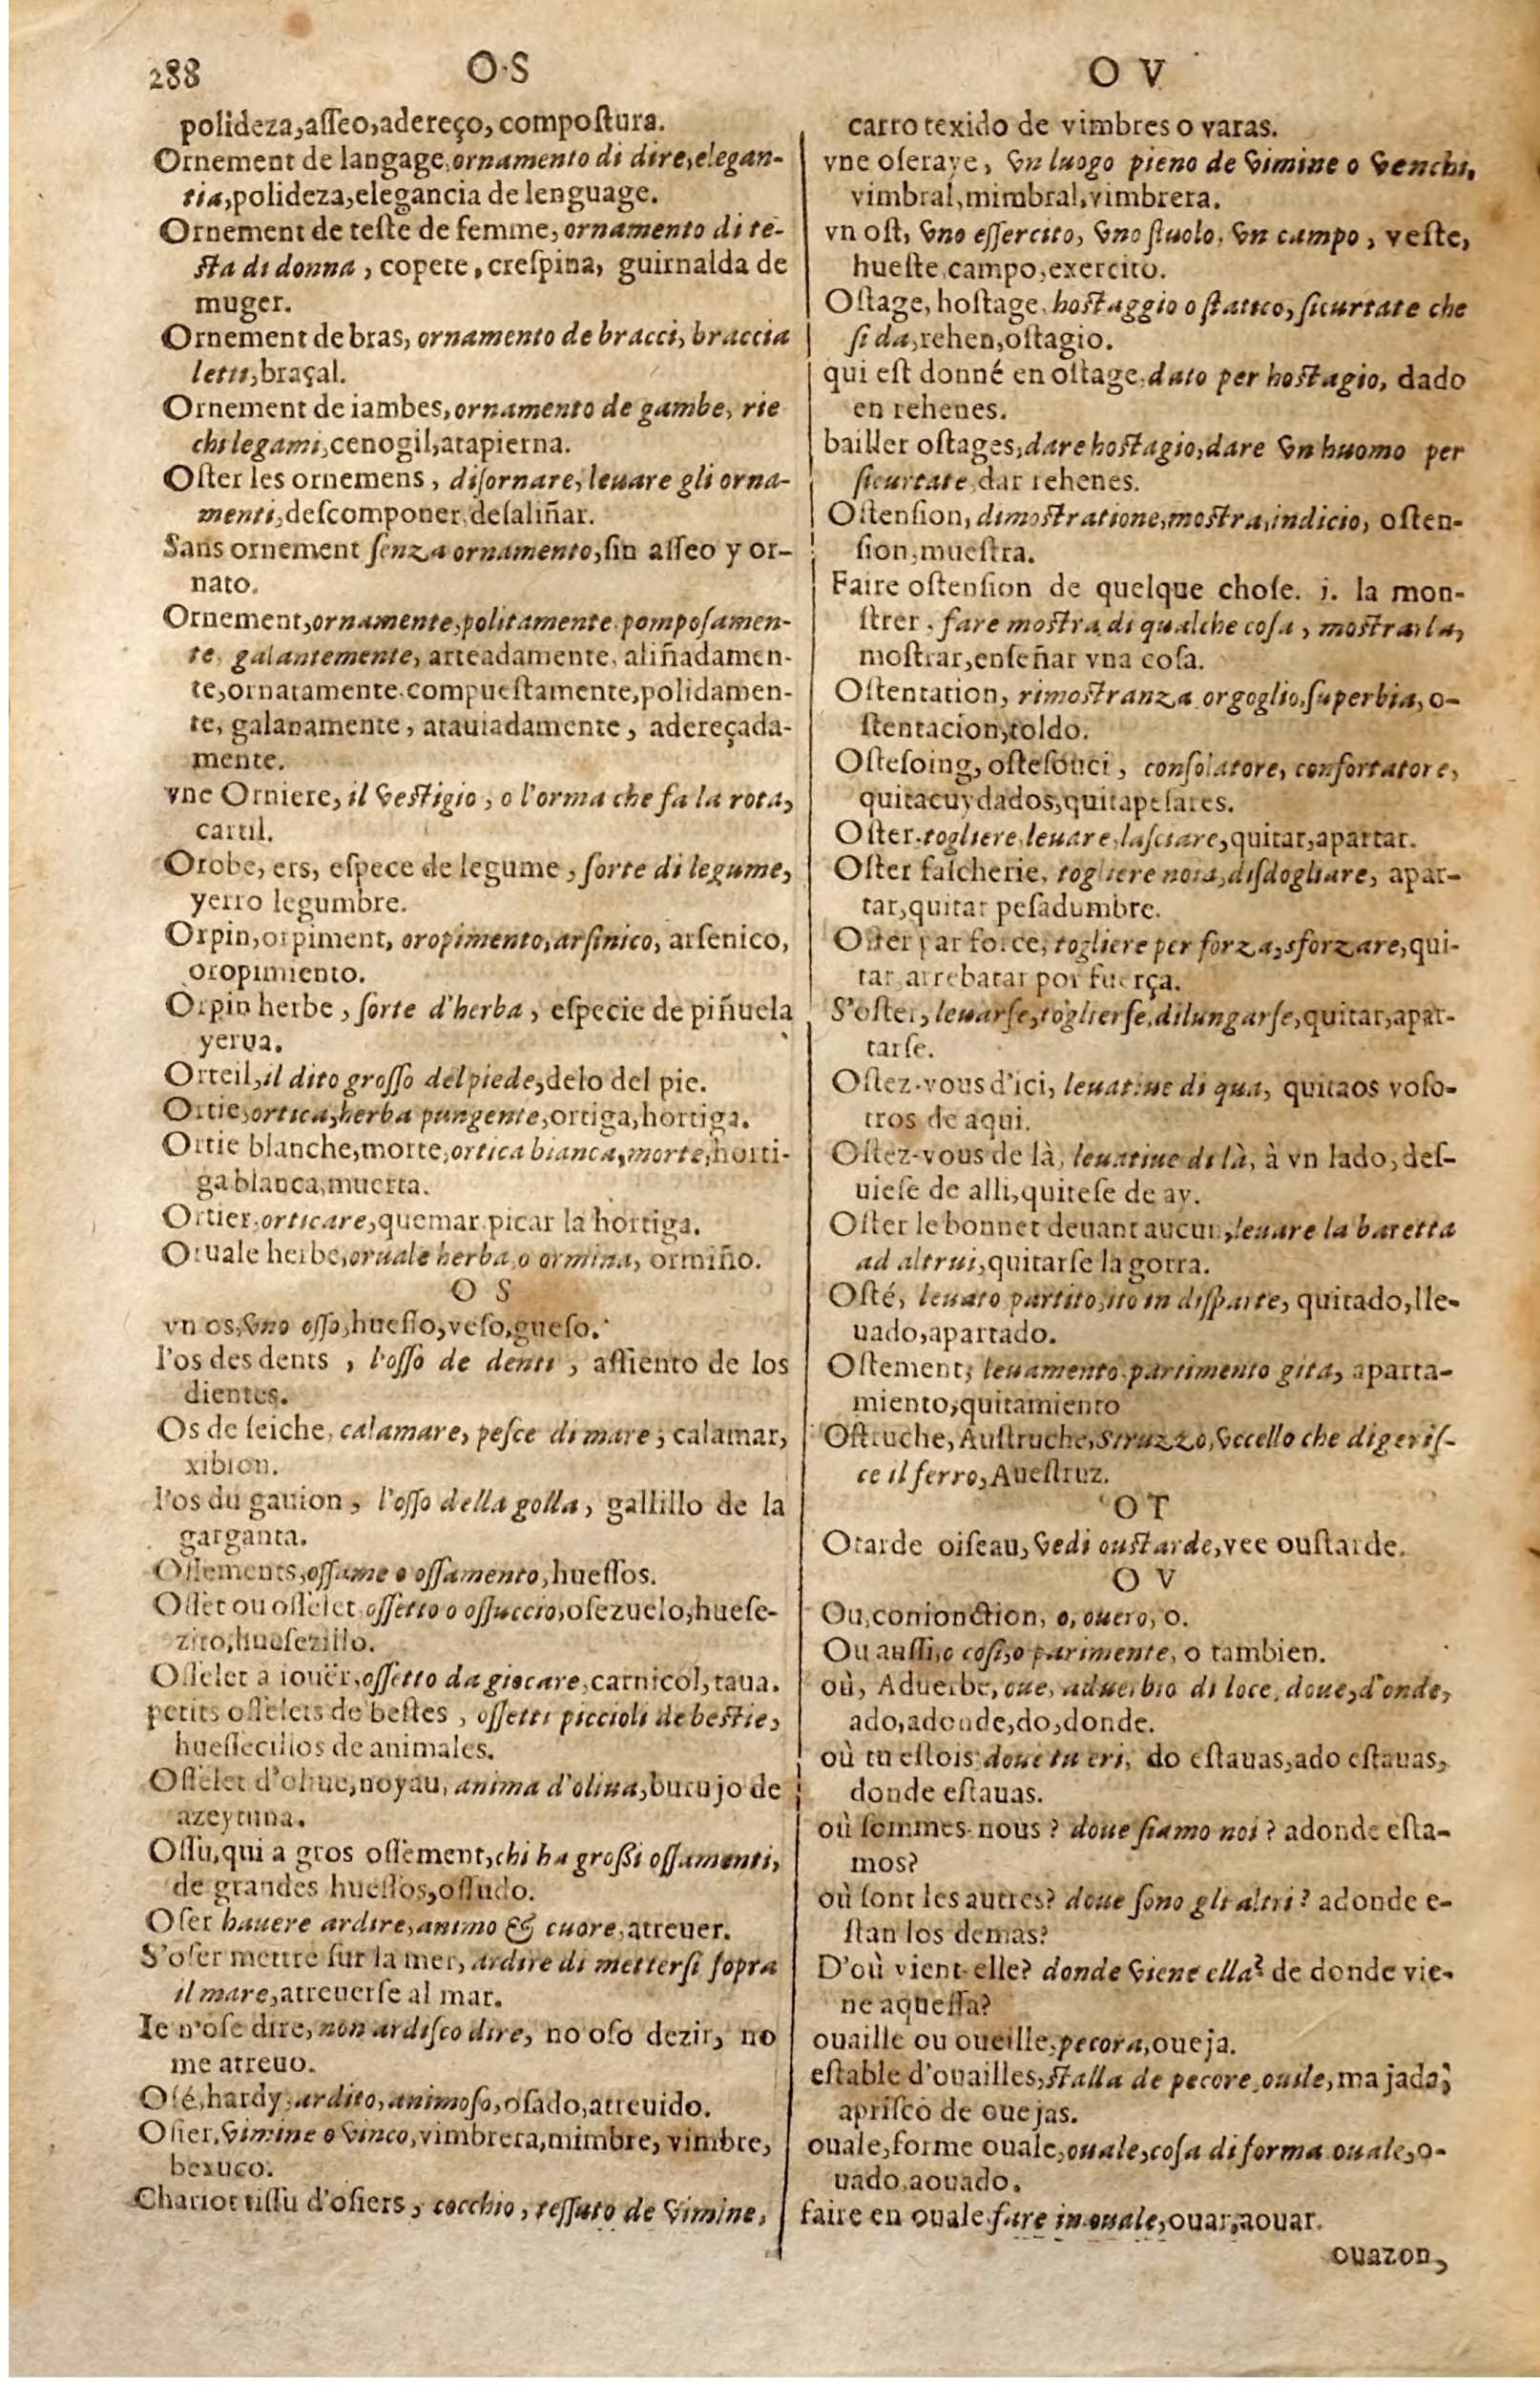 288
O S
polideza,asseo,adereço, compostura.
Ornement de langage, ornamento di dire, elegan-
tia,polideza,elegancia de lenguage.
Ornement de teste de femme, ornamento di te-
sta di donna , copete , crespina, guirnalda de
muger.
Ornement de bras, ornamento de bracci, braccia
letti,braçal.
Ornement de iambes, ornamento de gambe, ric
chi legami,cenogil,atapierna.
Oster les ornemens , disornare, leuare gli orna-
menti,descomponer,desaliñar.
Sans ornement senza ornamento,sin asseo y or-
nato.
Ornement,ornamente,politamente,pomposamen-
te, galantemente, arteadamente, aliñadamen-
te,ornatamente.compuestamente,polidamen-
te, galanamente , atauiadamente , adereçada-
mente.
vne Orniere, il vestigio , o l'orma che fa la rota,
carril.
Orobe, ers, espece de legume , sorte di legume,
yerro legumbre.
Orpin,orpiment, oropimento,arsinico, arsenico,
oropimiento.
Orpin herbe , sorte d'herba , especie de piñuela
yerua.
Orteil,il dito grosso del piede,dedo del pie.
Ortie,ortica,herba pungente,ortiga,hortiga.
Ortie blanche,morte,ortica bianca,morte,horti-
ga blanca,muerta.
Ortier,orticare,quemar.picar la hortiga.
Oruale herbe,oruale herba,o ormina, ormiño.
O S
vn os,vno osso,huesso,veso,gueso.
l'os des dents , l'osso de denti , assiento de los
dientes.
Os de seiche, calamare, pesce di mare , calamar,
xibion.
l'os du gauion , l'osso della golla, gallillo de la
garganta.
Ossements,ossame o ossamento,huessos.
Osset ou osselet,ossetto o ossuccio,osezuelo,huese-
zito,huesezillo.
Osselet à iouër,ossetto da giocare,carnicol,taua.
petits osselets de bestes , ossetti piccioli de bestie,
huessecillos de animales.
Osselet d'oliue,noyau, anima d'oliua,burujo de
azeytuna.
Ossu,qui a gros ossement,chi ha grossi ossamenti,
de grandes huessos,ossudo.
Oser hauere ardire,animo & cuore,atreuer.
S'oser mettre sur la mer, ardire di mettersi sopra
il mare,atreuerse al mar.
Ie n'ose dire, non ardisco dire, no oso dezir, no
me atreuo.
Osé,hardy,ardito,animoso,osado,atreuido.
Osier,vimine o vinco,vimbrera,mimbre, vimbre,
bexuco.
Chariot tissu d'osiers , cocchio , tessuto de vimine,
O V
carro texido de vimbres o varas.
vne oseraye, vn luogo pieno de vimine o venchi,
vimbral,mimbral,vimbrera.
vn ost, vno essercito, vno stuolo, vn campo , veste,
hueste,campo,exercito.
Ostage, hostage, hostaggio o statico, sicurtate che
si da,rehen,ostagio.
qui est donné en ostage,dato per hostagio, dado
en rehenes.
bailler ostages,dare hostagio,dare vn huomo per
sicurtate,dar rehenes.
Ostension, dimostratione,mostra,indicio, osten-
sion,muestra.
Faire ostension de quelque chose. i. la mon-
strer , fare mostra di qualche cosa , mostrarla,
mostrar,enseñar vna cosa.
Ostentation, rimostranza orgoglio,superbia, o-
stentacion,toldo.
Ostesoing, ostesouci , consolatore, confortatore,
quitacuydados,quitapesares.
Oster,togliere,leuare,lasciare,quitar,apartar.
Oster fascherie, togliere noia,disdogliare, apar-
tar,quitar pesadumbre.
Oster par force, togliere per forza,sforzare,qui-
tar,arrebatar por fuerça.
S'oster, leuarse,toglierse,dilungarse,quitar,apar-
tarse.
Ostez-vous d'ici, leuatiue di qua, quitaos voso-
tros de aqui.
Ostez-vous de là, leuatiue di là, à vn lado, des-
uiese de alli,quitese de ay.
Oster le bonnet deuant aucun,leuare la baretta
ad altrui,quitarse la gorra.
Osté, leuato partito,ito in disparte, quitado,lle-
uado,apartado.
Ostement, leuamento partimento gita, aparta-
miento,quitamiento
Ostruche, Austruche,Struzzo,vccello che digeris-
ce il ferro,Auestruz.
OT
Otarde oiseau, vedi oustarde,vee oustarde.
O V
Ou,conionction, o, ouero, o.
Ou aussi,o cosi,o parimente, o tambien.
où, Aduerbe, oue, aduerbio di loco, doue,d'onde,
ado,adonde,do,donde.
où tu estois doue tu eri, do estauas,ado estauas,
donde estauas.
où sommes-nous ? doue siamo noi ? adonde esta-
mos?
où sont les autres? doue sono gli altri? adonde e-
stan los demas?
D'où vient-elle? donde viene ella? de donde vie-
ne aquessa?
ouaille ou oueille,pecora,oueja.
estable d'ouailles,stalla de pecore,ouile,majada,
aprisco de ouejas.
ouale,forme ouale,ouale,cosa di forma ouale,o-
uado,aouado.
faire en ouale,fare in ouale,ouar,aouar.
ouazon,